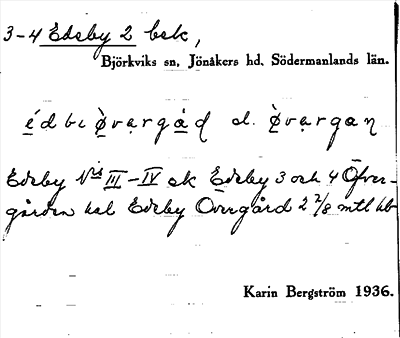 3-4 Edeby 2 bsk,
Björkviks sn, Jönåkers hd. Södermanlands län.
édbẹ ø̀vạrgå̀d el. ø̀vạrgạn
Edeby Nis III-IV sk Edeby 3 och 4 Öfver-
gården kal Edeby Övergård 2 7/8 mtl hb
Karin Bergström 1936.